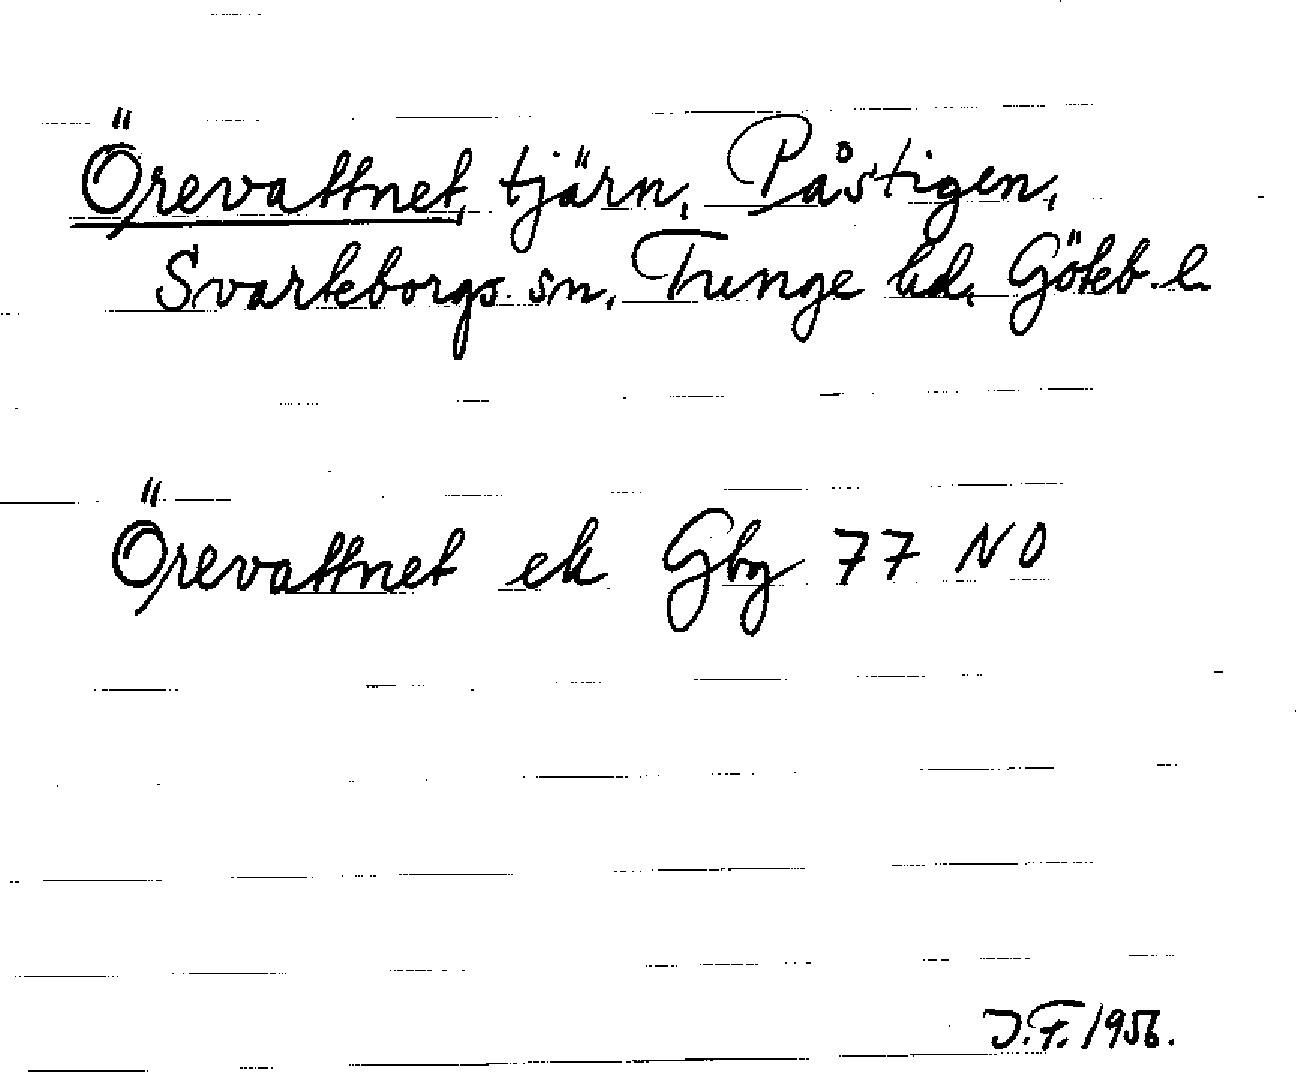 Örevattnet, tjärn, Påstigen,
Svarteborgs sn, Tunge hd, Göteb. l.
Örevattnet ek Gbg 77 NO
J.F. 1956.